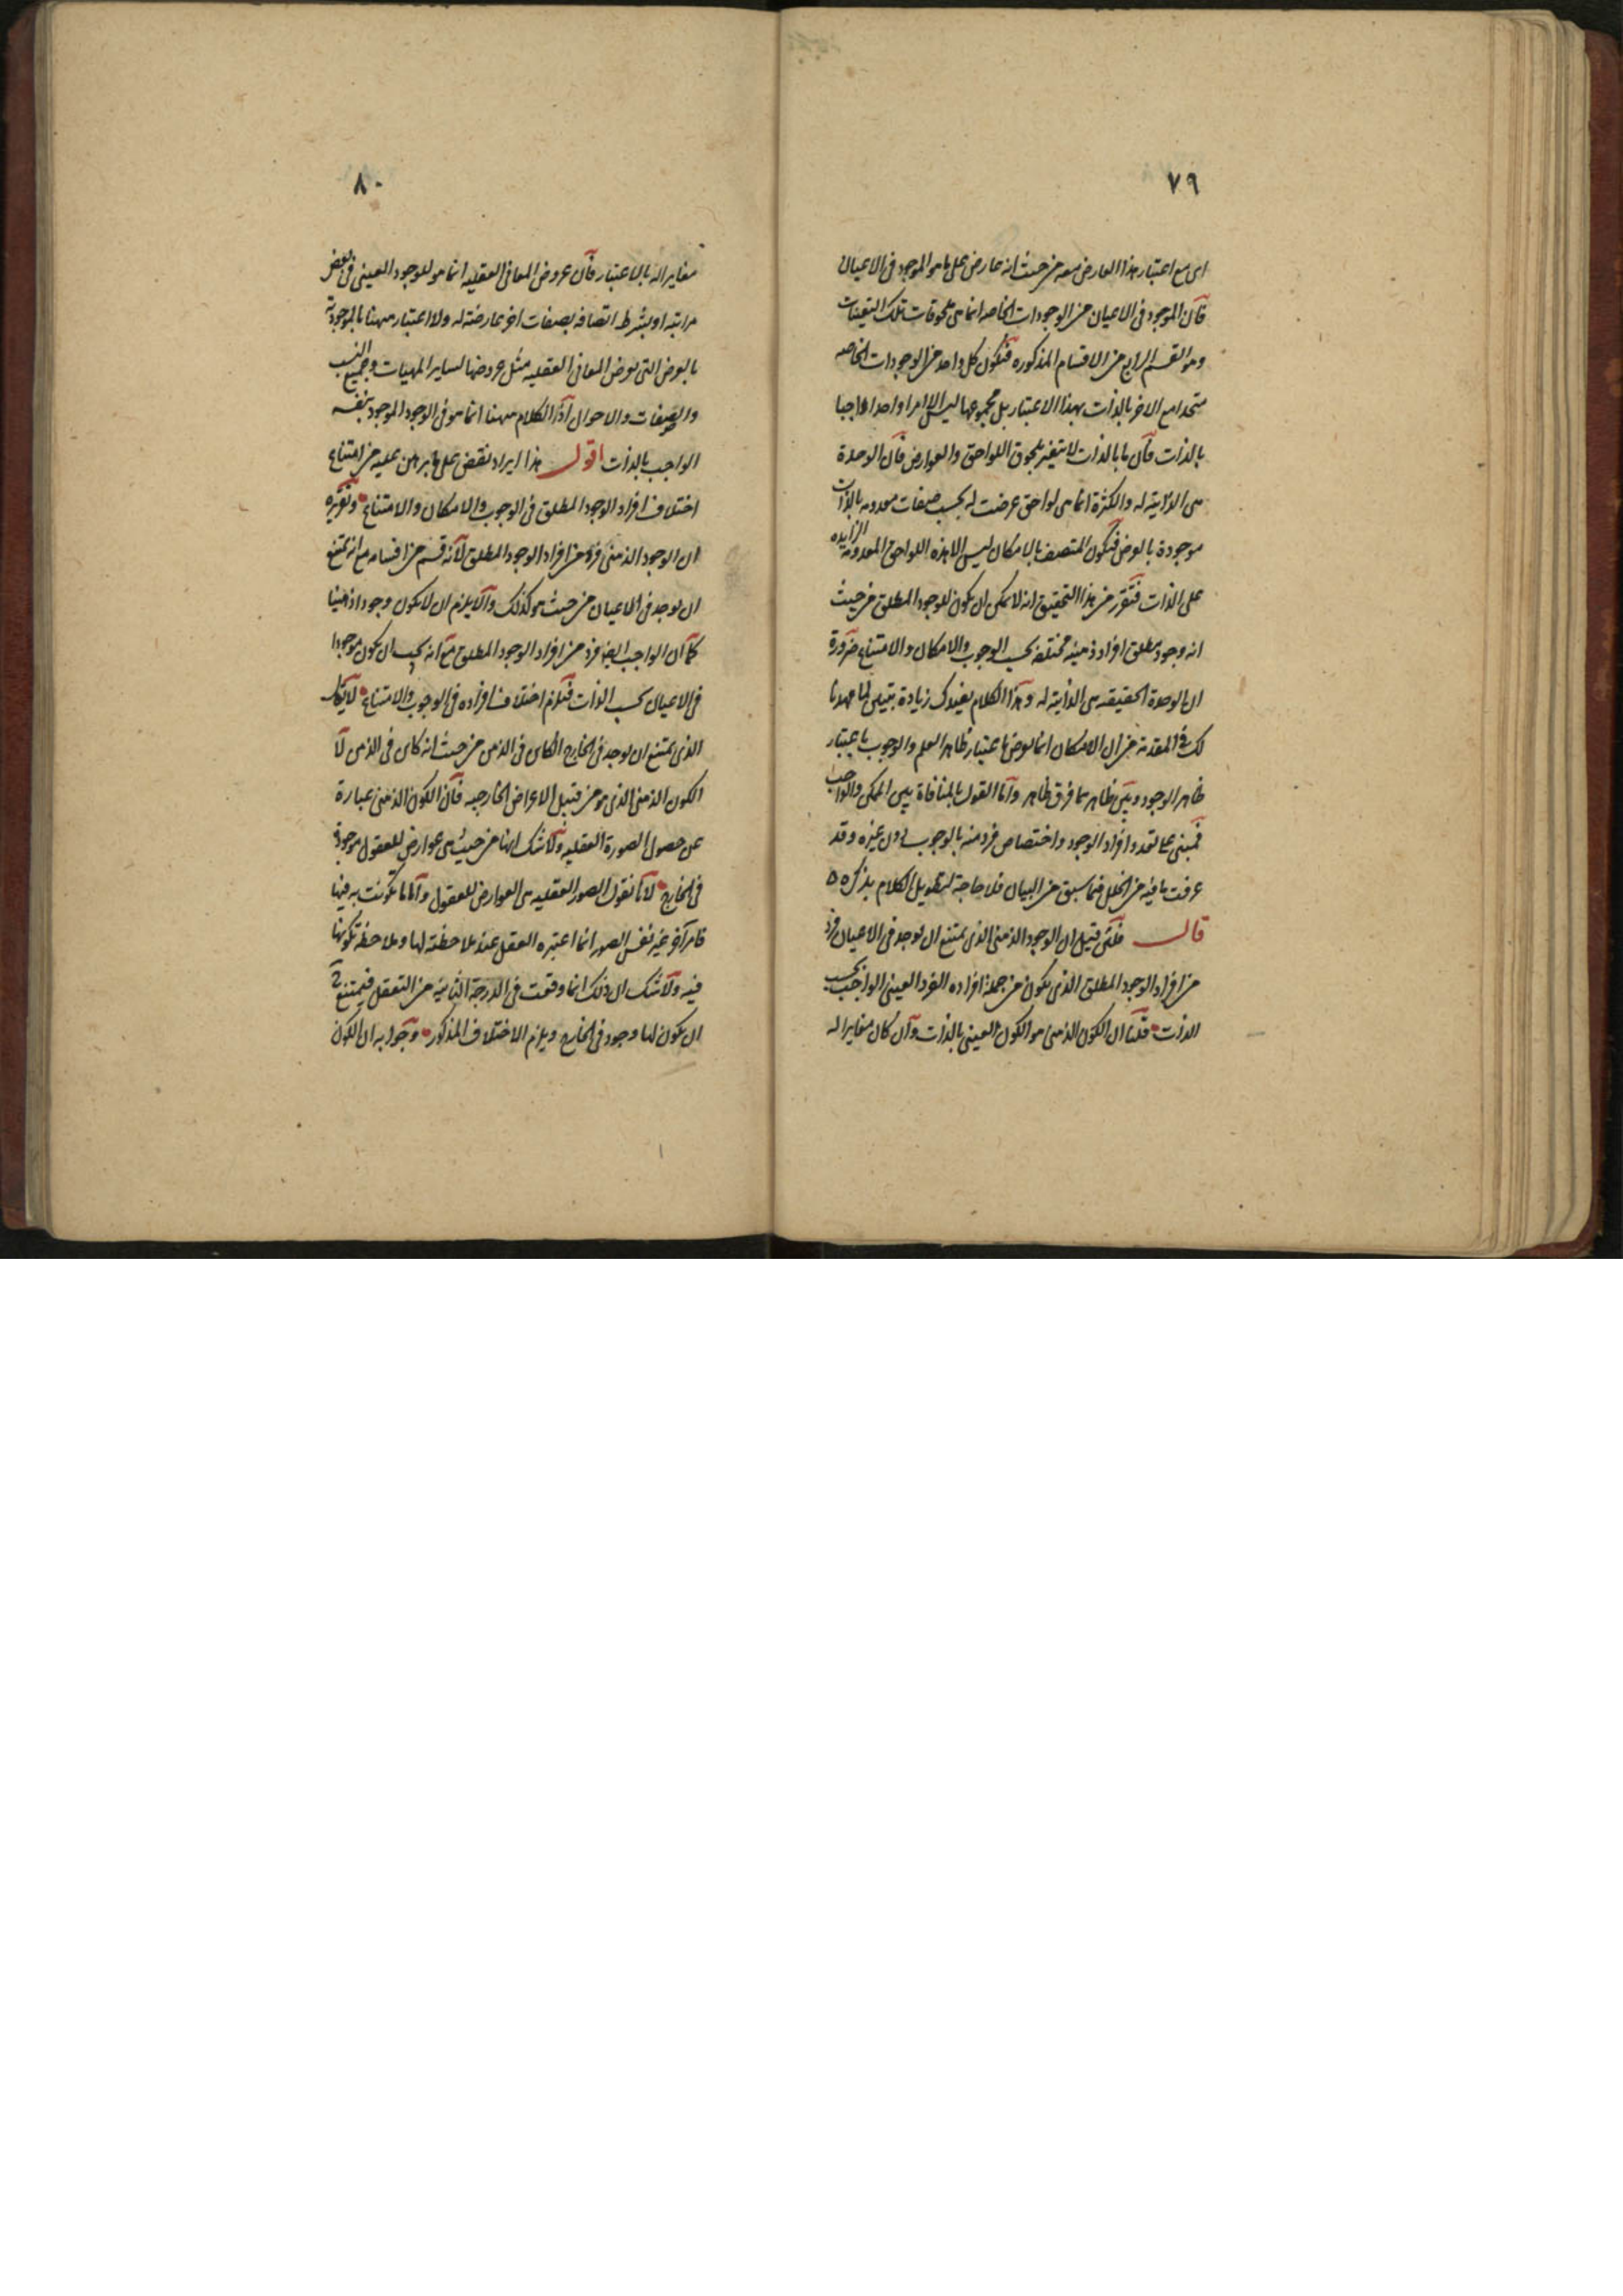 ٧٩
اى مع اعتبار هذا العارض معه من حيث انه عارض على ما هو الموجود فى الاعيان
فان الموجود فى الاعيان من الوجودات الخاصه انما هى ملحوقات تلك التعينات
وهو القسم الرابع من الاقسام المذكوره فيكون كل واحد من الوجودات الخاصه
متحدا مع الاخر بالذات بهذا الاعتبار بل مجموعها ليس الا امرا واحدا واجبا
بالذات فان ما بالذات لا يتغير بلحوق اللواحق والعوارض فان الوحدة
هى الذاتية له والكثرة انما هى لواحق عرضت له بحسب صفات معدومه بالذات
موجودة بالعرض فيكون المتصف بالامكان ليس الا هذه اللواحق المعدومة الزايده
على الذات فتقرر من هذا التحقيق انه لا يمكن ان يكون للوجود المطلق من حيث
انه وجود مطلق افراد ذهنيه مختلفه بحسب الوجوب والامكان والامتناع ضرورة
ان الوحدة الحقيقيه هى الذاتية له وهذا الكلام يفيدك زيادة تبيين لما مهدنا
لك فى المقدمة من ان الامكان انما يعرض باعتبار ظاهر العلم والوجوب باعتبار
ظاهر الوجود وبين ظاهريهما فرق ظاهر واما القول بالمنافاة بين الممكن والواجب
فمبنى على تعدد افراد الوجود واختصاص فرد منه بالوجوب دون غيره وقد
عرفت ما فيه من الخلل فيما سبق من البيان فلا حاجة لتطويل الكلام بذكره ٥
قال فلئن قيل ان الوجود الذهنى الذى يمتنع ان يوجد فى الاعيان فرد
من افراد الوجود المطلق الذى يكون من جملة افراده الفرد العينى الواجب بحسب
الذات قلنا ان الكون الذهنى هو الكون العينى بالذات وان كان مغايرا له
٨٠
مغايرا له بالاعتبار فان عروض المعانى العقليه انما هو للوجود العينى فى بعض
مراتبه او بشرط اتصافه بصفات اخر عارضته له ولا اعتبار ههنا بالموجودية
بالعرض التى يعرض المعانى العقليه مثل عروضها لساير المهيات وجميع النسب
والصفات والاحوال اذ الكلام ههنا انما هو فى الوجود الموجود بنفسه
الواجب بالذات اقول هذا ايراد نقض على ما برهن عليه من امتناع
اختلاف افراد الوجود المطلق فى الوجوب والامكان والامتناع وتقريره
ان الوجود الذهنى فرد من افراد الوجود المطلق لانه قسم من اقسامه مع انه يمتنع
ان يوجد فى الاعيان من حيث هو كذلك والا يلزم ان لا يكون وجودا ذهنيا
كما ان الواجب ايضا فرد من افراد الوجود المطلق مع انه يجب ان يكون موجودا
فى الاعيان بحسب الذات فيلزم اختلاف افراده فى الوجوب والامتناع لا يقال
الذى يمتنع ان يوجد فى الخارج الكاين فى الذهن من حيث انه كاين فى الذهن لا
الكون الذهنى الذى هو من قبيل الاعراض الخارجيه فان الكون الذهنى عبارة
عن حصول الصورة العقليه ولا شك انها من حيث هى عوارض للعقول موجودة
فى الخارج لانا نقول الصور العقليه هى العوارض للعقول واما ما تكونت به فيها
فامر آخر غير نفس الصور انما اعتبره العقل عند ملاحظته لها وملاحظة تكونها
فيه ولا شك ان ذلك انما وقعت فى الدرجة الثانية من التعقل فيمتنع ح
ان يكون لها وجود فى الخارج ويلزم الاختلاف المذكور وجوابه ان الكون